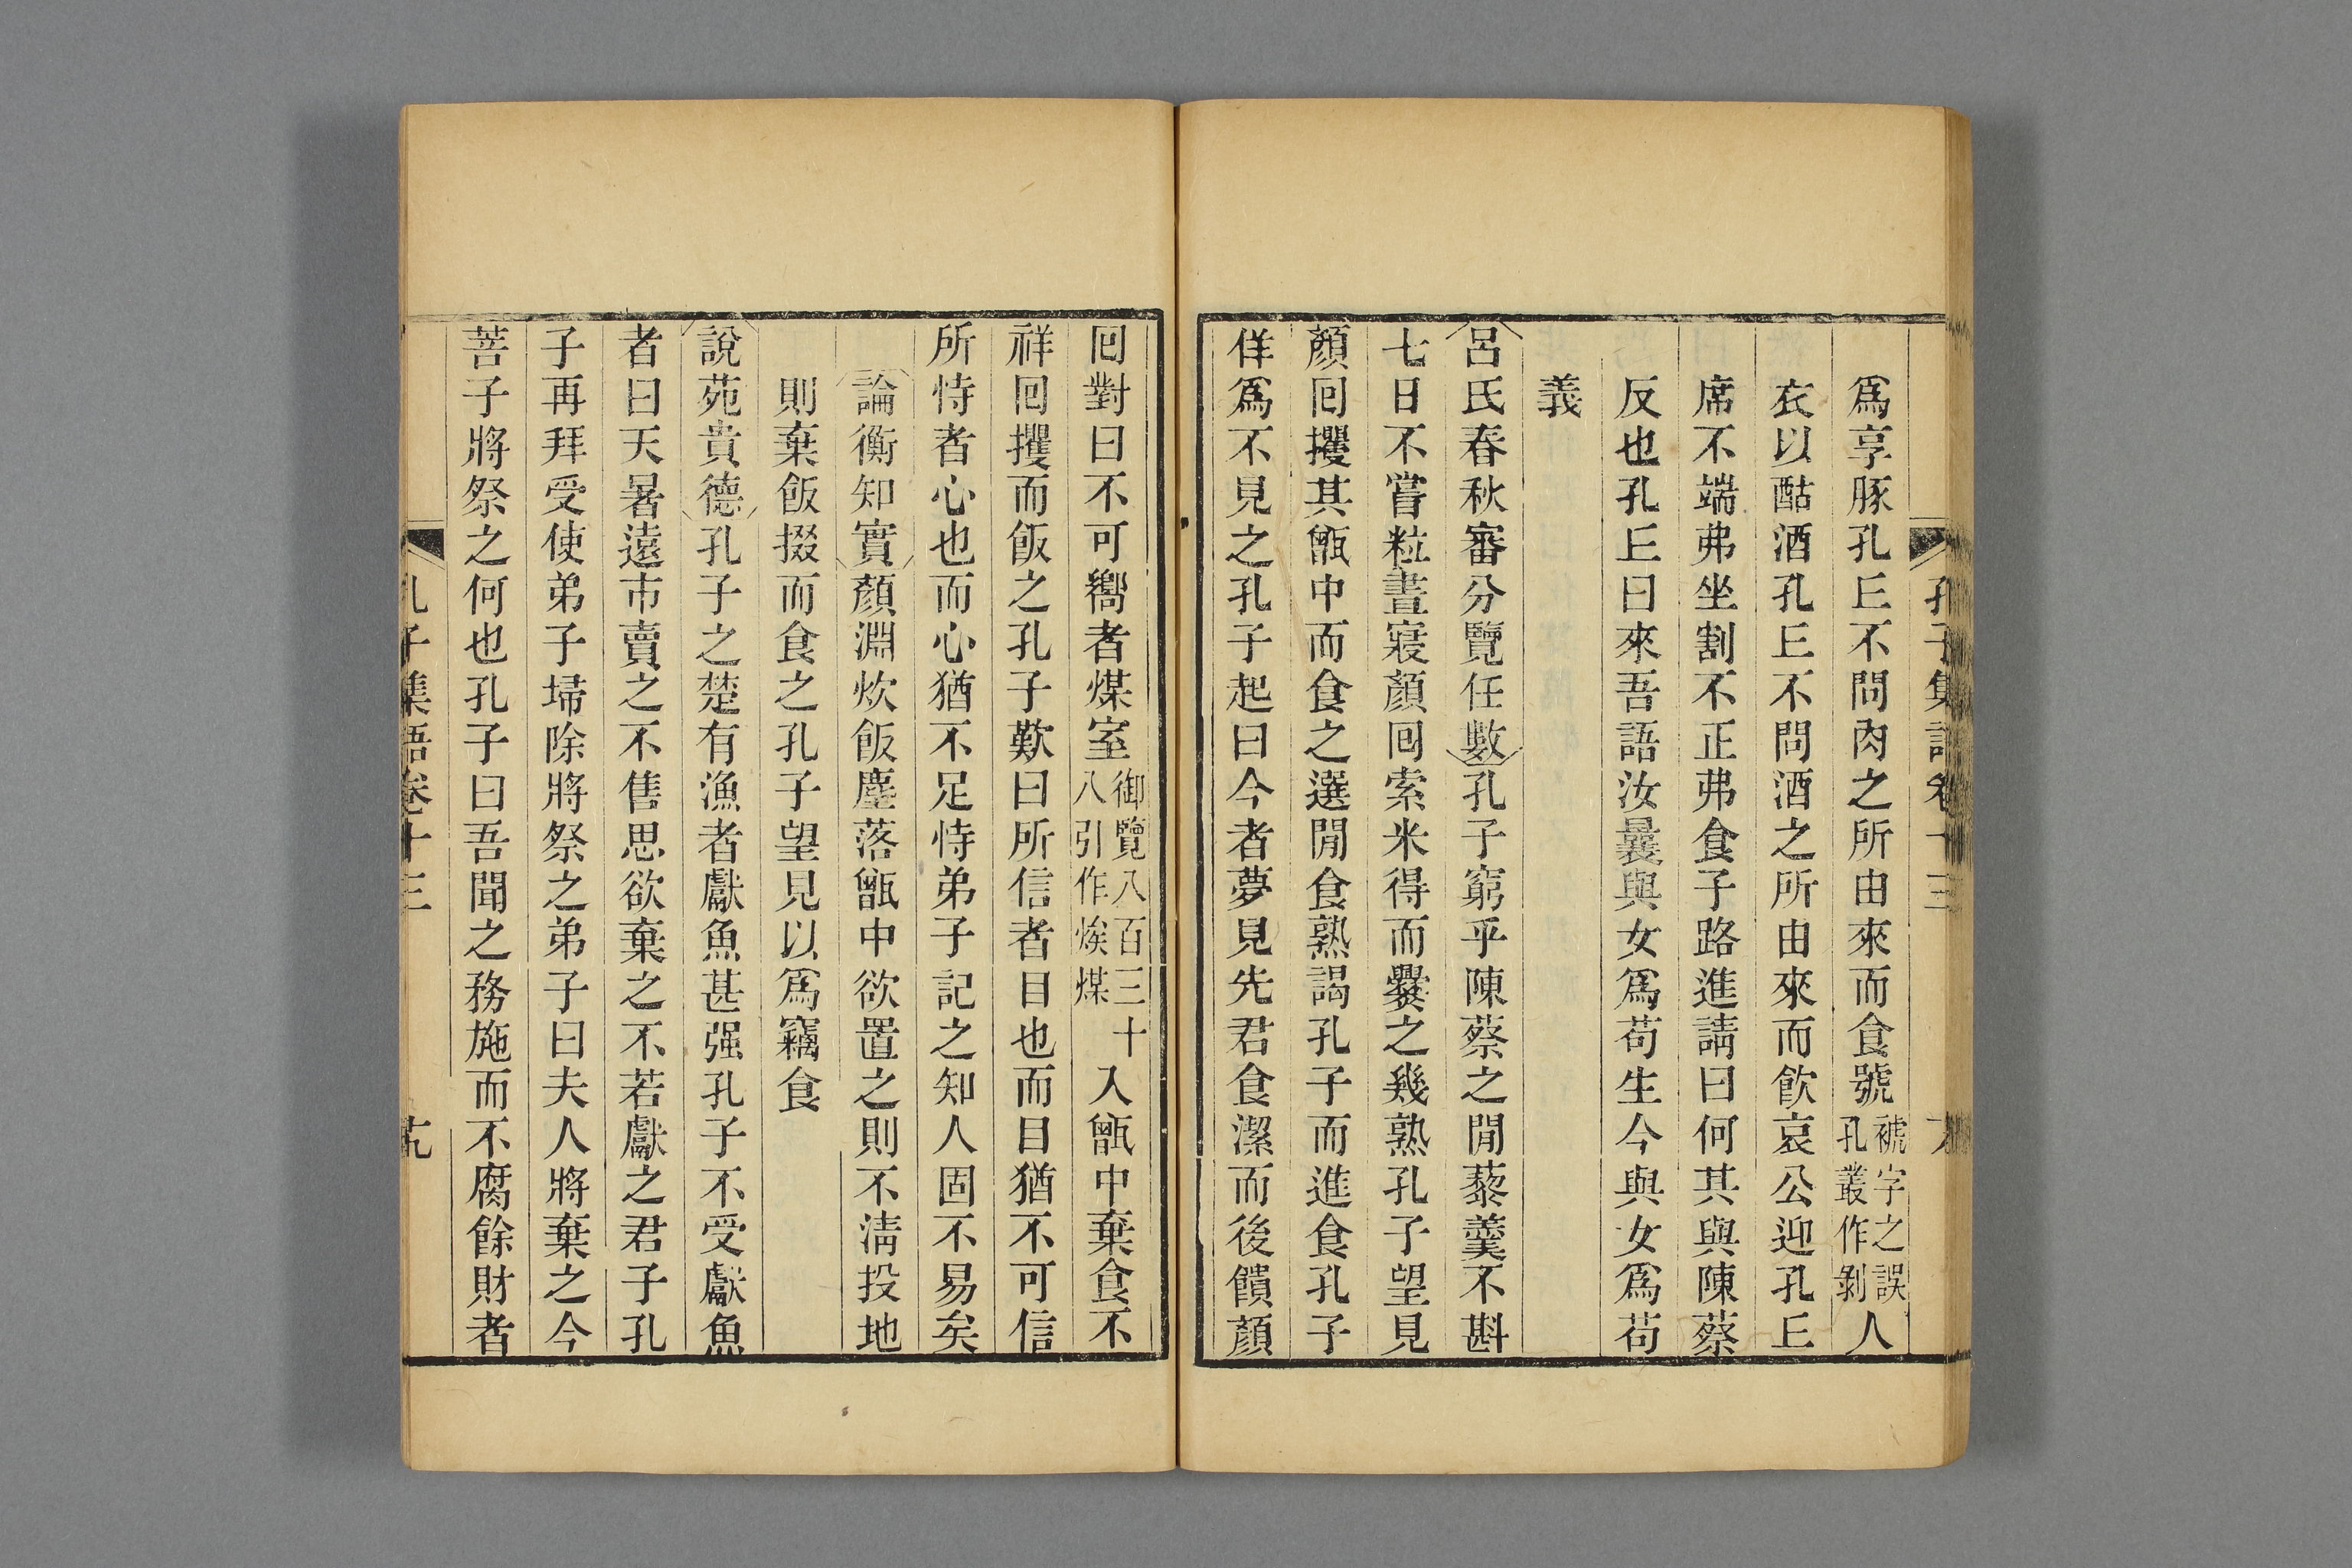 孔子集語卷十三
爲享豚孔𠀉不問肉之所由來而食號褫字之誤孔叢作剝人
衣以酤酒孔𠀉不問酒之所由來而飮哀公迎孔𠀉
席不端弗坐割不正弗食子路進請曰何其與陳蔡
反也孔𠀉曰來吾語汝曩與女爲苟生今與女爲苟
義
呂氏春秋審分覽任數孔子窮乎陳蔡之閒藜羹不斟
七日不嘗粒晝寢顏回索米得而爨之幾熟孔子望見
顏回攫其甑中而食之選閒食熟謁孔子而進食孔子
佯爲不見之孔子起曰今者夢見先君食潔而後饋顏
回對曰不可嚮者煤室御覽八百三十八引作煤入甑中棄食不
祥回攫而飯之孔子歎曰所信者目也而目猶不可信
所恃者心也而心猶不足恃弟子記之知人固不易矣
論衡知實顏淵炊飯塵落甑中欲置之則不淸投地
則棄飯掇而食之孔子望見以爲竊食
說苑貴德孔子之楚有漁者獻魚甚强孔子不受獻魚
者曰天暑遠市賣之不售思欲棄之不若獻之君子孔
子再拜受使弟子埽除將祭之弟子曰夫人將棄之今
吾子將祭之何也孔子曰吾聞之務施而不腐餘財者
孔子集語卷十三